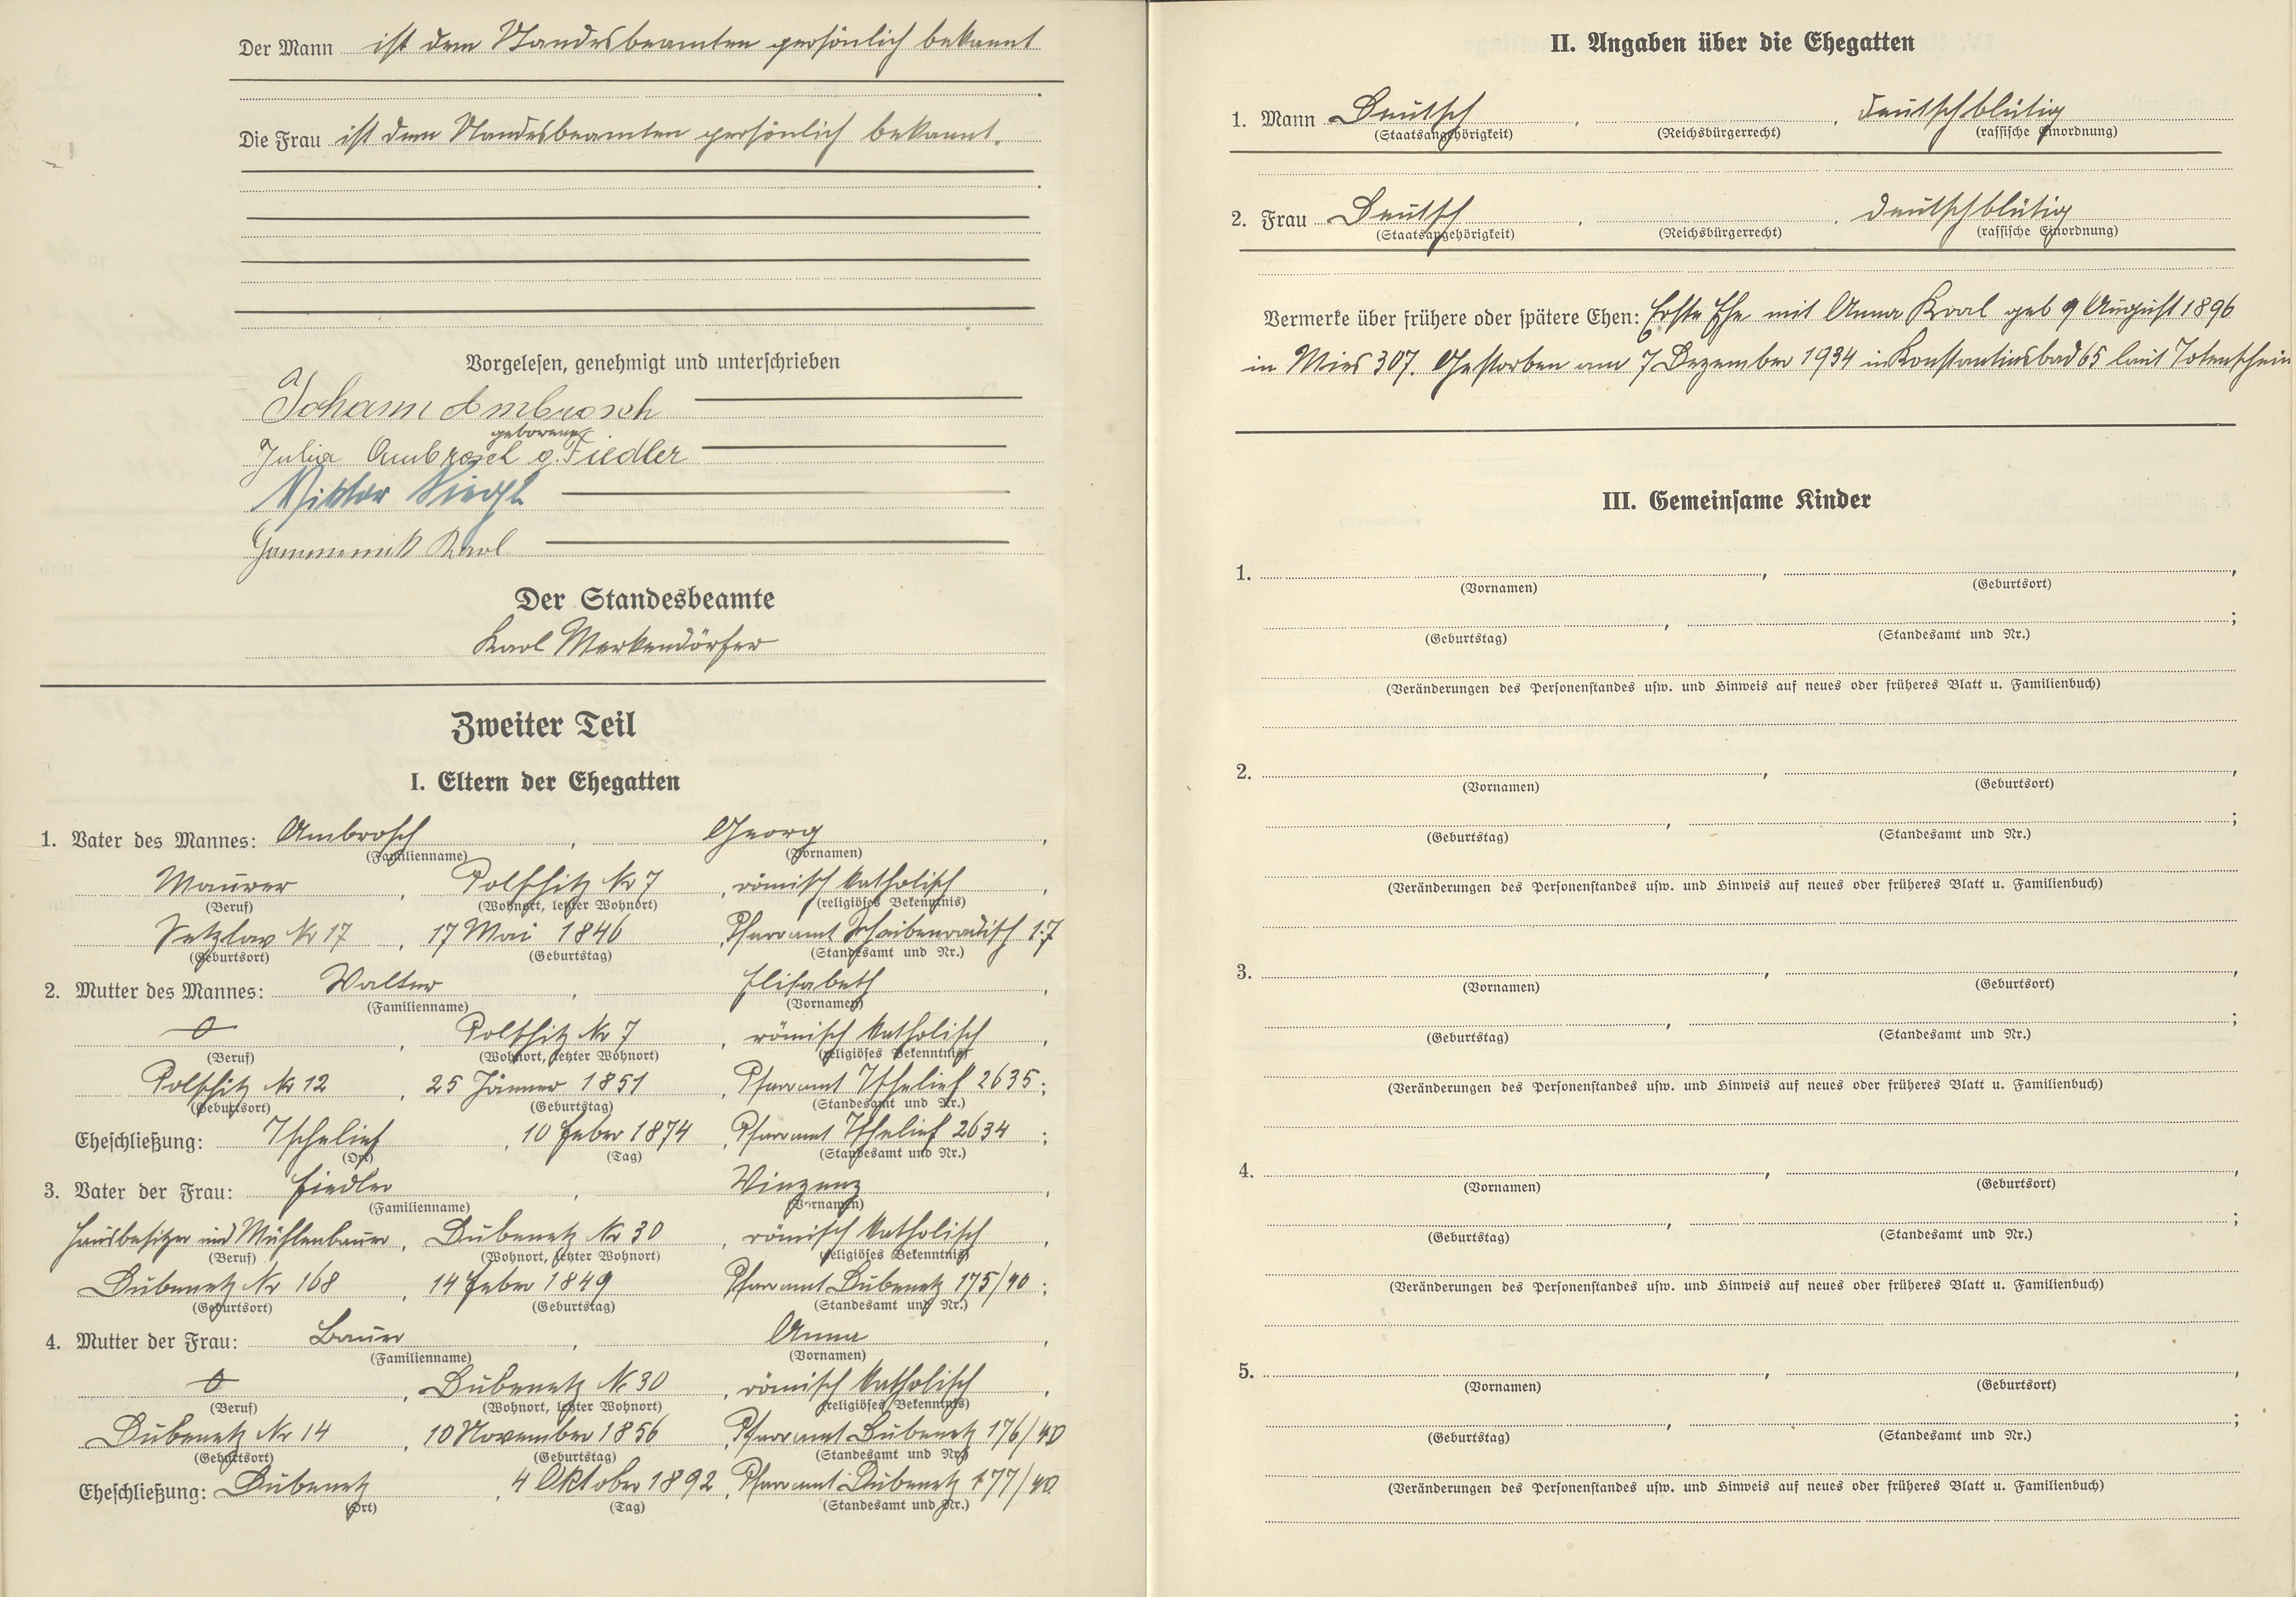 Der Mann ist dem Standesbeamten persönlich bekannt
Die Frau ist dem Standesbeamten persönlich bekannt.
Vorgelesen, genehmigt und unterschrieben
Johann Ambrosch
geborene
Julia Ambrosch g. Fiedler
Viktor Siegl
Karl
Der Standesbeamte
Karl Merkendörfer
Zweiter Teil
I. Eltern der Ehegatten
1. Vater des Mannes: Ambrosch, Georg,
(Familienname) (Vornamen)
Maurer, Polschitz Nr 7, römisch katholisch,
(Beruf) (Wohnort, letzter Wohnort) (religiöses Bekenntnis)
Setzlav Nr 17, 17 Mai 1846, Pfarramt Scheibenradisch 1.7
(Geburtsort) (Geburtstag) (Standesamt und Nr.)
2. Mutter des Mannes: Walter, Elisabeth,
(Familienname) (Vornamen)
, Polschitz Nr 7, römisch katholisch,
(Beruf) (Wohnort, letzter Wohnort) (religiöses Bekenntnis)
Polschitz Nr 12, 25 Jänner 1851, Pfarramt Tschelief 2635;
(Geburtsort) (Geburtstag) (Standesamt und Nr.)
Eheschließung: Tschelief, 10 Feber 1874, Pfarramt Tschelief 2634;
(Ort) (Tag) (Standesamt und Nr.)
3. Vater der Frau: Fiedler, Vinzenz,
(Familienname) (Vornamen)
Hausbesitzer und Mühlenbauer, Dubenetz Nr 30, römisch katholisch,
(Beruf) (Wohnort, letzter Wohnort) (religiöses Bekenntnis)
Dubenetz Nr 168, 14 Feber 1849, Pfarramt Dubenetz 175/40;
(Geburtsort) (Geburtstag) (Standesamt und Nr.)
4. Mutter der Frau: Bauer, Anna,
(Familienname) (Vornamen)
, Dubenetz Nr 30, römisch katholisch,
(Beruf) (Wohnort, letzter Wohnort) (religiöses Bekenntnis)
Dubenetz Nr 14, 10 November 1856, Pfarramt Dubenetz 176/40
(Geburtsort) (Geburtstag) (Standesamt und Nr.)
Eheschließung: Dubenetz, 4 Oktober 1892, Pfarramt Dubenetz 177/40
(Ort) (Tag) (Standesamt und Nr.)
II. Angaben über die Ehegatten
1. Mann Deutsch, , deutschblütig
(Staatsangehörigkeit) (Reichsbürgerrecht) (rassische Einordnung)
2. Frau Deutsch, , deutschblütig
(Staatsangehörigkeit) (Reichsbürgerrecht) (rassische Einordnung)
Vermerke über frühere oder spätere Ehen: Erste Ehe mit Anna Kral geb 9 August 1896
in Mies 307. Gestorben am 7 Dezember 1934 in Konstantinsbad 65 laut Totenschein
III. Gemeinsame Kinder
1. , ,
(Vornamen) (Geburtsort)
, ;
(Geburtstag) (Standesamt und Nr.)
(Veränderungen des Personenstandes usw. und Hinweis auf neues oder früheres Blatt u. Familienbuch)
2. , ,
(Vornamen) (Geburtsort)
, ;
(Geburtstag) (Standesamt und Nr.)
(Veränderungen des Personenstandes usw. und Hinweis auf neues oder früheres Blatt u. Familienbuch)
3. , ,
(Vornamen) (Geburtsort)
, ;
(Geburtstag) (Standesamt und Nr.)
(Veränderungen des Personenstandes usw. und Hinweis auf neues oder früheres Blatt u. Familienbuch)
4. , ,
(Vornamen) (Geburtsort)
, ;
(Geburtstag) (Standesamt und Nr.)
(Veränderungen des Personenstandes usw. und Hinweis auf neues oder früheres Blatt u. Familienbuch)
5. , ,
(Vornamen) (Geburtsort)
, ;
(Geburtstag) (Standesamt und Nr.)
(Veränderungen des Personenstandes usw. und Hinweis auf neues oder früheres Blatt u. Familienbuch)